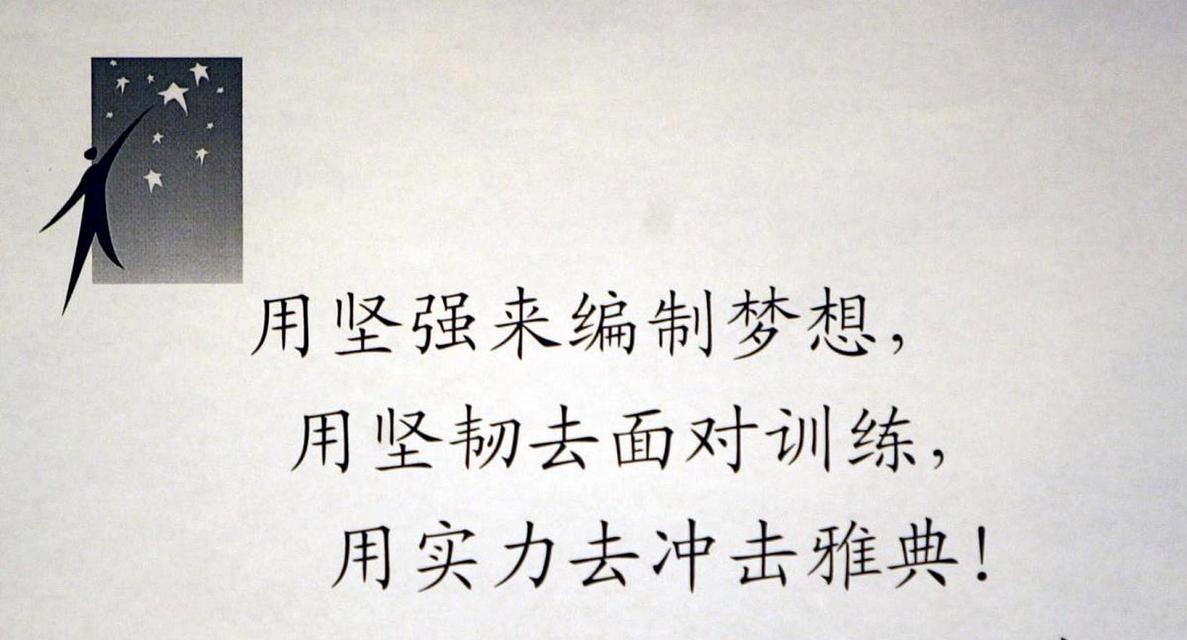 用坚强来编制梦想，
用坚韧去面对训练，
用实力去冲击雅典！